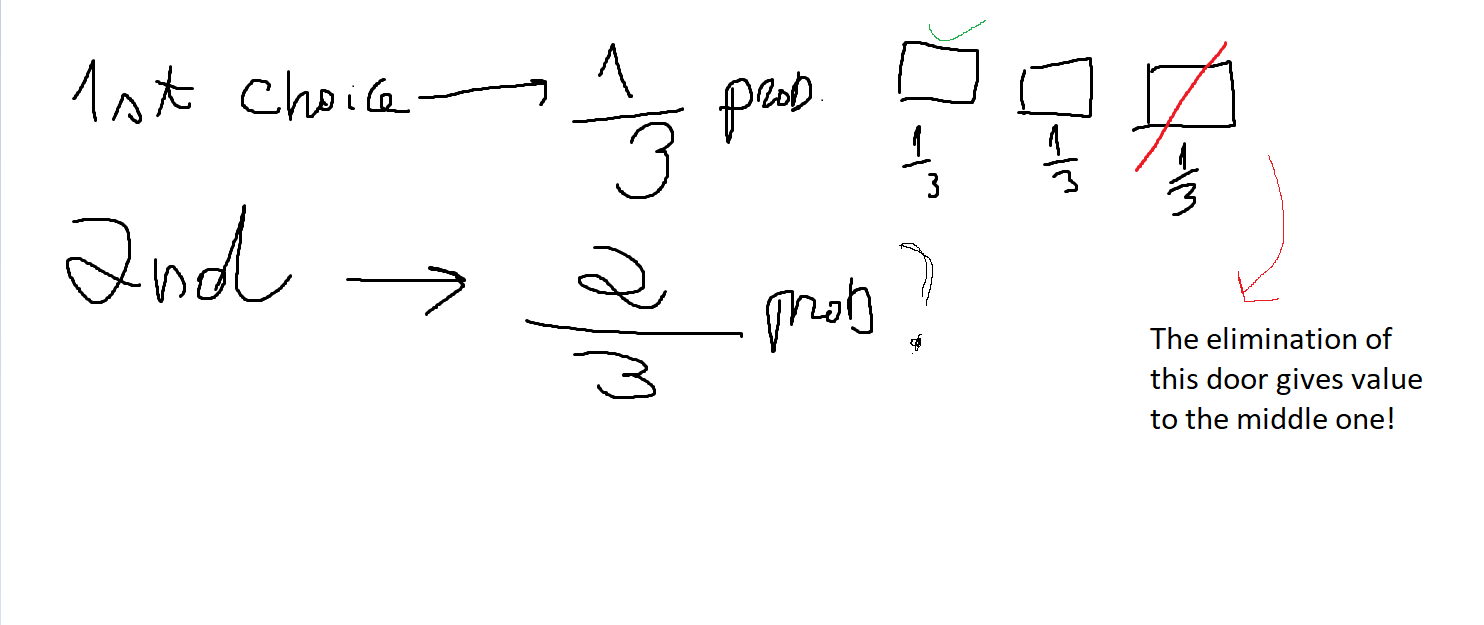 1st choice → 1/3 prob.
1/3 1/3 1/3
2nd → 2/3 prob ?
The elimination of
this door gives value
to the middle one!